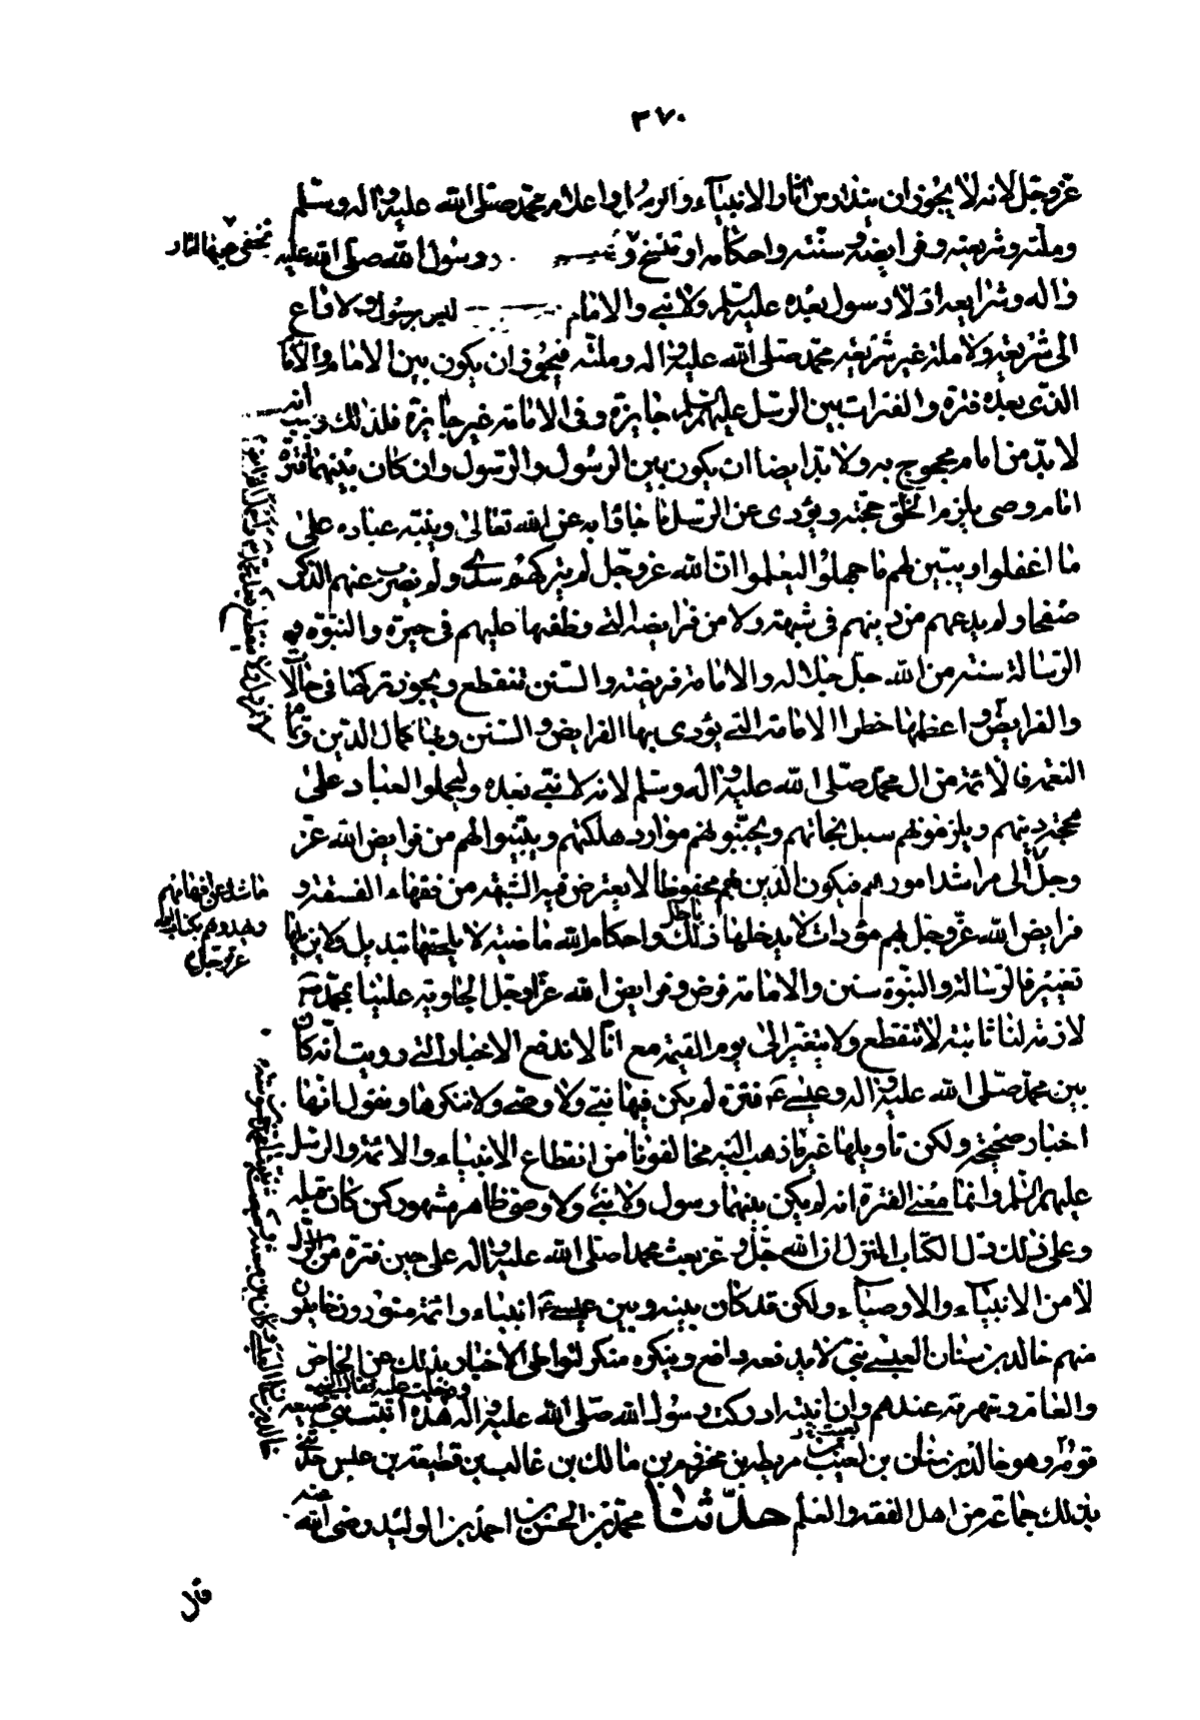 ٣٧٠
عز وجل لانه لا يجوز ان يندرس اثار الانبياء والرسل واعلام محمد صلى الله عليه واله وسلم
وملته وشريعته وفرايضه وسنته واحكامه او تنسخ و رسول الله صلى الله عليه
واله وشرايعه اذ لا رسول بعده عليه السلم ولا نبي والامام ليس برسول ولا داع
الى شريعة ولا ملة غير شريعة محمد صلى الله عليه واله وملته فيجوز ان يكون بين الامام والاما
الذى بعده فترة والفترات بين الرسل عليهم السلم جايزة وفى الامامة غير جايزة فلذلك وجب انه
لا بد من امام محجوج به ولا بد ايضا ان يكون بين الرسول والرسول وان كان بينهما فترة
امام وصى يلزم الخلق حجته ويؤدى عن الرسل ما جاؤا به عن الله تعالى وينبه عباده على
ما اغفلوا ويبين لهم ما جهلوا ليعلموا ان الله عز وجل لم يتركهم سدى ولم يضرب عنهم الذكر
صفحا ولم يدعهم من دينهم فى شبهة ولا من فرايضه التي وظفها عليهم فى حيرة والنبوة و
الرسالة سنة من الله جل جلاله والامامة فريضة والسنن تنقطع ويجوز تركها فى حالات
والفرايض واعظمها خطرا الامامة التي يؤدى بها الفرايض والسنن وبها كمال الدين وتمام
النعمة فالائمة من ال محمد صلى الله عليه واله وسلم لانه لا نبي بعده وليحملوا العباد على
محجة دينهم ويلزموهم سبل نجاتهم ويجنبوهم موارد هلكتهم ويبينوا لهم من فرايض الله عز
وجل الى مراشد امورهم فيكون الدين بهم محفوظا لا يعترض فيه الشبهة من فقهاء الفسقة و
ما شذ عن افهامهم
ويهدوهم بكتاب الله
عز وجل
فرايض الله عز وجل بهم مؤداة لا يدخلها باطل ذلك واحكام الله ماضية لا يلحقها تبديل ولا يزيلها
تغيير فالرسالة والنبوة سنن والامامة فرض وفرايض الله عز وجل الجارية علينا بمحمد
لازمة لنا ثابتة لا تنقطع ولا يتغير الى يوم القيمة مع انا لا ندفع الاخبار التي رويت انه كان
بين محمد صلى الله عليه واله وعيسى ع فترة لم يكن فيها نبي ولا وصي ولا ننكرها ونقول انها
اخبار صحيحة ولكن تاويلها غير ما ذهب اليه مخالفونا من انقطاع الانبياء والائمة والرسل
عليهم السلم وانما معنى الفترة انه لم يكن بينهما رسول ولا نبي ولا وصي ظاهر مشهور كمن كان قبله
وعلى ذلك دل الكتاب المنزل ان الله جل وعز بعث محمدا صلى الله عليه واله على حين فترة من الرسل
لا من الانبياء والاوصياء ولكن قد كان بينه وبين عيسى ع انبياء وائمة مستورون خايفون
منهم خالد بن سنان العبسي نبي لا يدفعه دافع وينكره منكر لتواطئ الاخبار بذلك عن الخاص
والعام وشهرته عندهم وان ابنته ادركت رسول الله صلى الله عليه واله ودخلت عليه فقال النبي هذه ابنة نبي ضيعه
قومه وهو خالد بن سنان بن بعيث بن مريطة بن مخزوم بن مالك بن غالب بن قطيعة بن عبس حدثني
بذلك جماعة من اهل الفقه والعلم حدثنا محمد بن الحسن بن احمد بن الوليد رضى الله عنه
قال